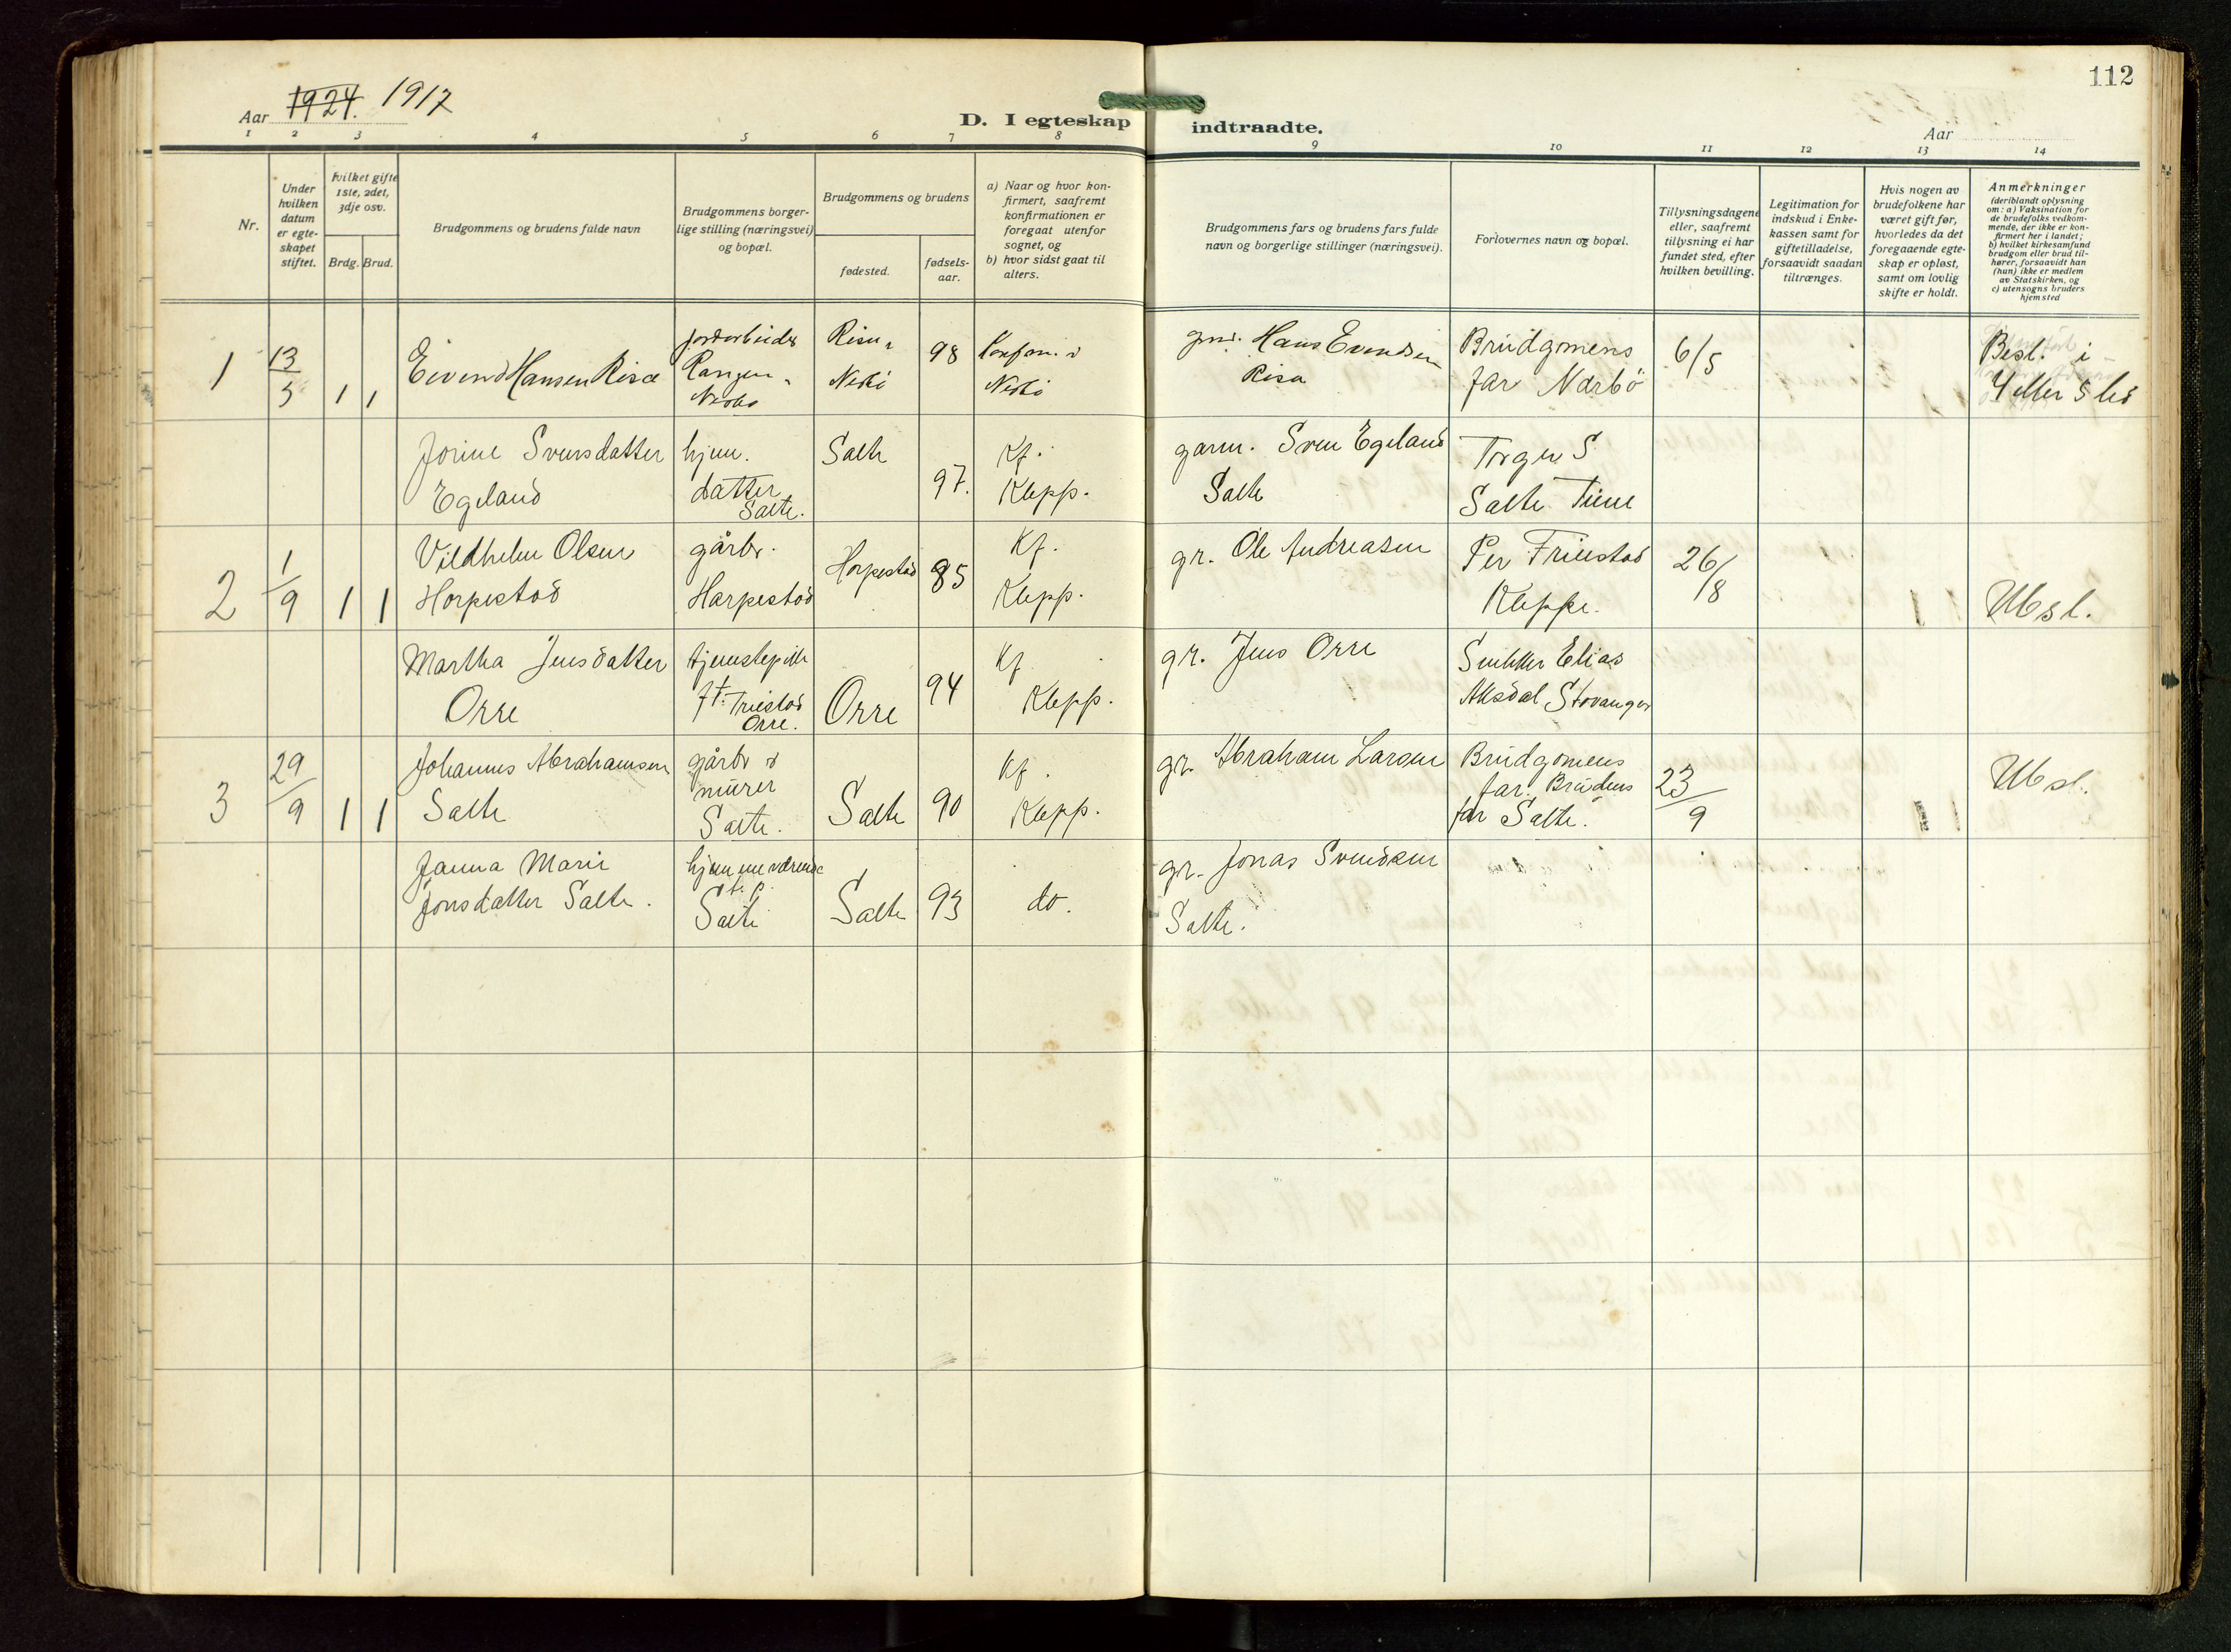 112
Aar 1924. 1917
D. I egteskap indtraadte.
Aar
1 2 3 4 5 6 7 8 9 10 11 12 13 14
Nr.
Under hvilken datum er egteskapet stiftet.
hvilket gifte 1ste, 2det, 3dje osv.
Brdg. Brud.
Brudgommens og brudens fulde navn
Brudgommens borgerlige stilling (næringsvei) og bopæl.
Brudgommens og brudens
fødested.
fødselsaar.
a) Naar og hvor konfirmert, saafremt konfirmationen er foregaat utenfor sognet, og
b) hvor sidst gaat til alters.
Brudgommens fars og brudens fars fulde navn og borgerlige stillinger (næringsvei).
Forlovernes navn og bopæl.
Tillysningsdagene eller, saafremt tillysning ei har fundet sted, efter hvilken bevilling.
Legitimation for indskud i Enkekassen samt for giftetilladelse, forsaavidt saadan tiltrænges.
Hvis nogen av brudefolkene har været gift før, hvorledes da det foregaaende egteskap er opløst, samt om lovlig skifte er holdt.
Anmerkninger
(deriblandt oplysning om: a) Vaksination for de brudefolks vedkommende, der ikke er konfirmert her i landet;
b) hvilket kirkesamfund brudgom eller brud tilhører, forsaavidt han (hun) ikke er medlem av Statskirken, og
c) utensogns bruders hjemsted
1 13/5 1 1 Eivend Hansen Risa
Nerbø
Risa, Nerbø 98
Konfm. i Nerbø
Hans Evendsen Risa
Brudgomens far Nærbö
6/5
Besl. i 4 eller 5 led
Jorine Svensdatter Egeland
hjem. datter Salte.
Salte 97.
Kf. Klepp.
garm. Sven Egeland Salte
Torger S Salte
2 1/9 1 1 Vildhelm Olsen Horpestad
gårbr. Harpestad
Horpestad 85
Kf. Klepp.
gr. Ole Andreasen
Per Friestad Kleppe.
26/8
Ubsl.
Martha Jensdatter Orre
Friestad Orre.
Orre 94
Kf Klepp.
gr. Jens Orre
Snikker Elias Aksdal Stavanger
3 29/9 1 1 Johannes Abrahamsen Salte
gårbr & murer Salte.
Salte 90
Kf. Klepp.
gr. Abraham Larsen
Brudgomens far. Brudens far Salte.
23/9
Ubsl.
Janna Marie Jonsdatter Salte.
hjemmeværende t. p. Salte
Salte 93
do.
gr. Jonas Svendsen Salte.